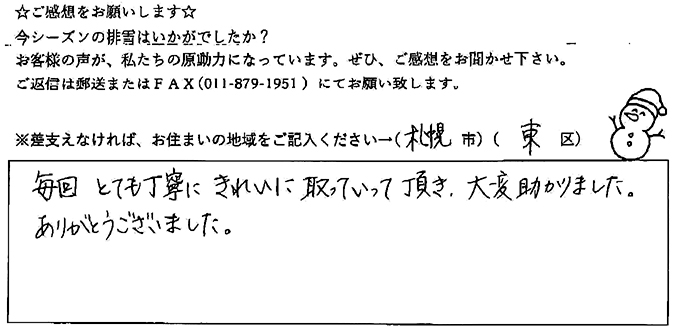 ☆ご感想をお願いします☆
今シーズンの排雪はいかがでしたか？
お客様の声が、私たちの原動力になっています。ぜひ、ご感想をお聞かせ下さい。
ご返信は郵送またはＦＡＸ（011-879-1951）にてお願い致します。
※差支えなければ、お住まいの地域をご記入ください→（札幌 市）（ 東 区）
毎回 とても丁寧に きれいに 取っていって 頂き、大変助かりました。
ありがとうございました。